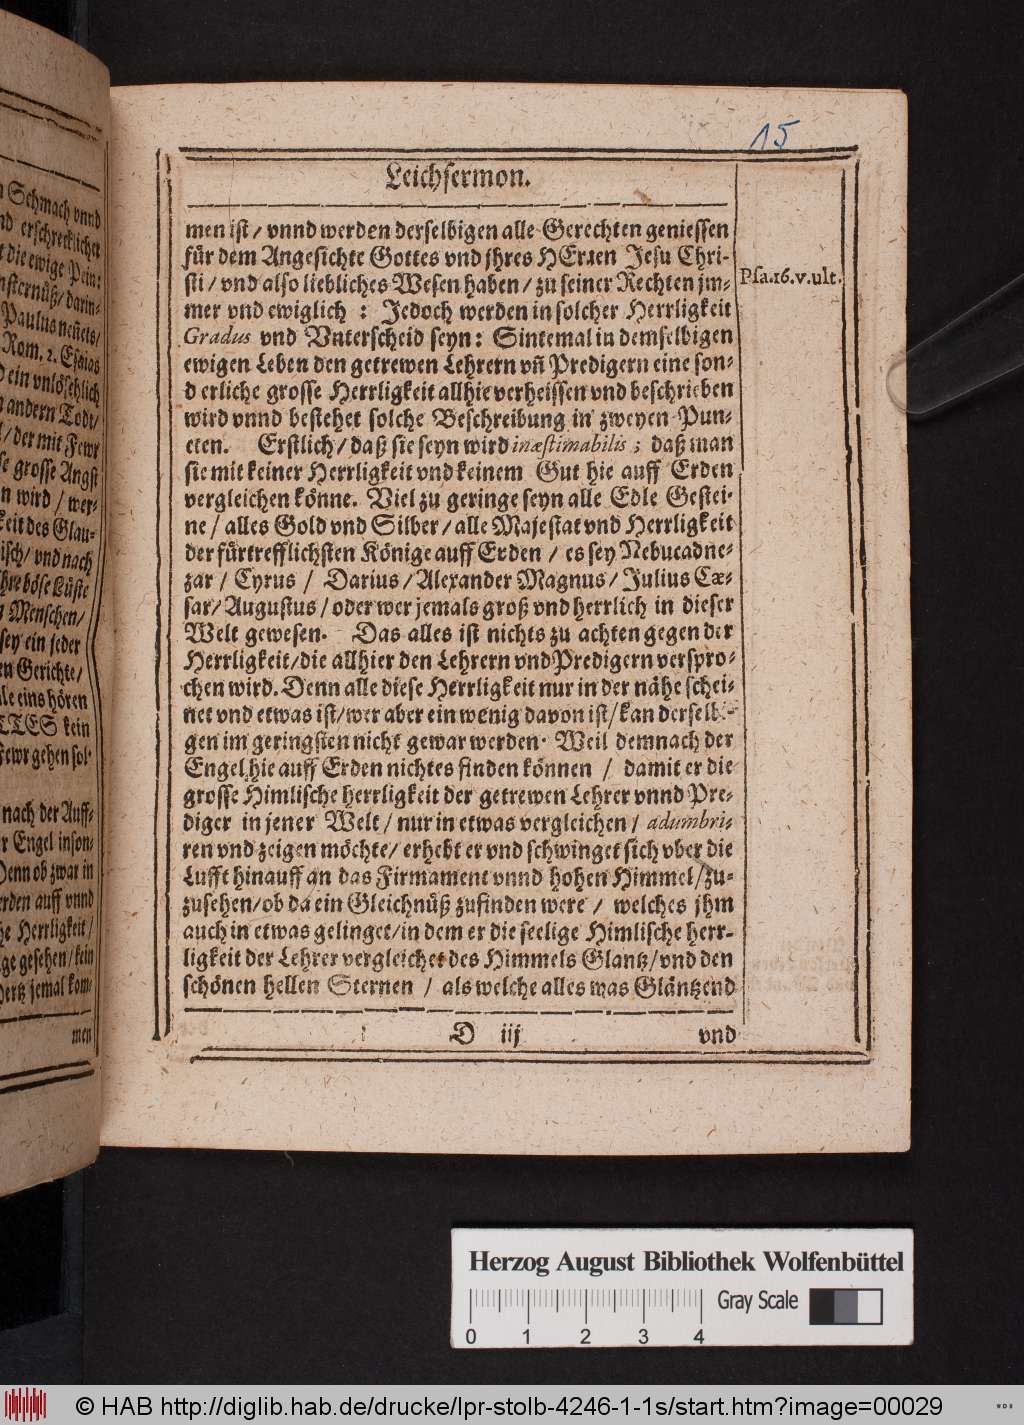 n Schmach vnnd
nd erschrecklicher
t die ewige Pein:
nsternüß/darin-
Paulus neñets/
Rom. 2. Esaias
d ein vnlöschlich
n andern Todt/
l/der mit Fewr
se grosse Angst
n wird/wer-
keit des Glau-
isch/vnd nach
hre böse Lüste
n Menschen/
sey ein jeder
en Gerichte/
le eins hören
TTES kein
Fewr gehen sol-
nach der Auff-
r Engel inson-
Denn ob zwar in
erden auff vnnd
he Herrligkeit/
ge gesehen/kein
Hertz jemal kom-
men
15
Leichsermon.
men ist/vnnd werden derselbigen alle Gerechten geniessen
für dem Angesichte Gottes vnd jhres HErren Jesu Chri-
sti/vnd also liebliches Wesen haben/zu seiner Rechten jm-
mer vnd ewiglich: Jedoch werden in solcher Herrligkeit
Gradus vnd Vnterscheid seyn: Sintemal in demselbigen
ewigen Leben den getrewen Lehrern vñ Predigern eine son-
derliche grosse Herrligkeit allhie verheissen vnd beschrieben
wird vnnd bestehet solche Beschreibung in zweyen Pun-
cten. Erstlich/daß sie seyn wird inæstimabilis; daß man
sie mit keiner Herrligkeit vnd keinem Gut hie auff Erden
vergleichen könne. Viel zu geringe seyn alle Edle Gestei-
ne/alles Gold vnd Silber/alle Majestat vnd Herrligkeit
der fürtrefflichsten Könige auff Erden/es sey Nebucadne-
zar/Cyrus/Darius/Alexander Magnus/Julius Cæ-
sar/Augustus/oder wer jemals groß vnd herrlich in dieser
Welt gewesen. Das alles ist nichts zu achten gegen der
Herrligkeit/die allhier den Lehrern vnd Predigern verspro-
chen wird. Denn alle diese Herrligkeit nur in der nähe schei-
net vnd etwas ist/wer aber ein wenig davon ist/kan derselbi-
gen im geringsten nicht gewar werden. Weil demnach der
Engel hie auff Erden nichtes finden können/damit er die
grosse Himlische herrligkeit der getrewen Lehrer vnnd Pre-
diger in jener Welt/nur in etwas vergleichen/adumbri-
ren vnd zeigen möchte/erhebt er vnd schwinget sich vber die
Lufft hinauff an das Firmament vnnd hohen Himmel/zu-
zusehen/ob da ein Gleichnüß zufinden were/welches jhm
auch in etwas gelinget/in dem er die seelige Himlische herr-
ligkeit der Lehrer vergleichet des Himmels Glantz/vnd den
schönen hellen Sternen/als welche alles was Gläntzend
D iij vnd
Psa.16.v.ult.
Herzog August Bibliothek Wolfenbüttel
Gray Scale
0 1 2 3 4
© HAB http://diglib.hab.de/drucke/lpr-stolb-4246-1-1s/start.htm?image=00029